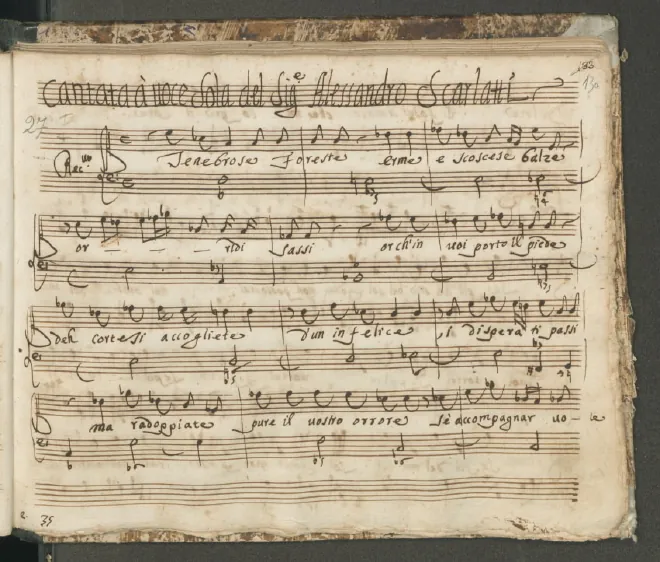 133
130
Cantata à voce Sola del Sig.e Alessandro Scarlatti
27
Rec.vo Tenebrose foreste erme e scoscese balze
or - - - ridi sassi or ch'in voi porto il piede
deh cortesi accogliete d'un infelice i dispera ti passi
ma radoppiate pure il vostro orrore se accompagnar vo - le
35